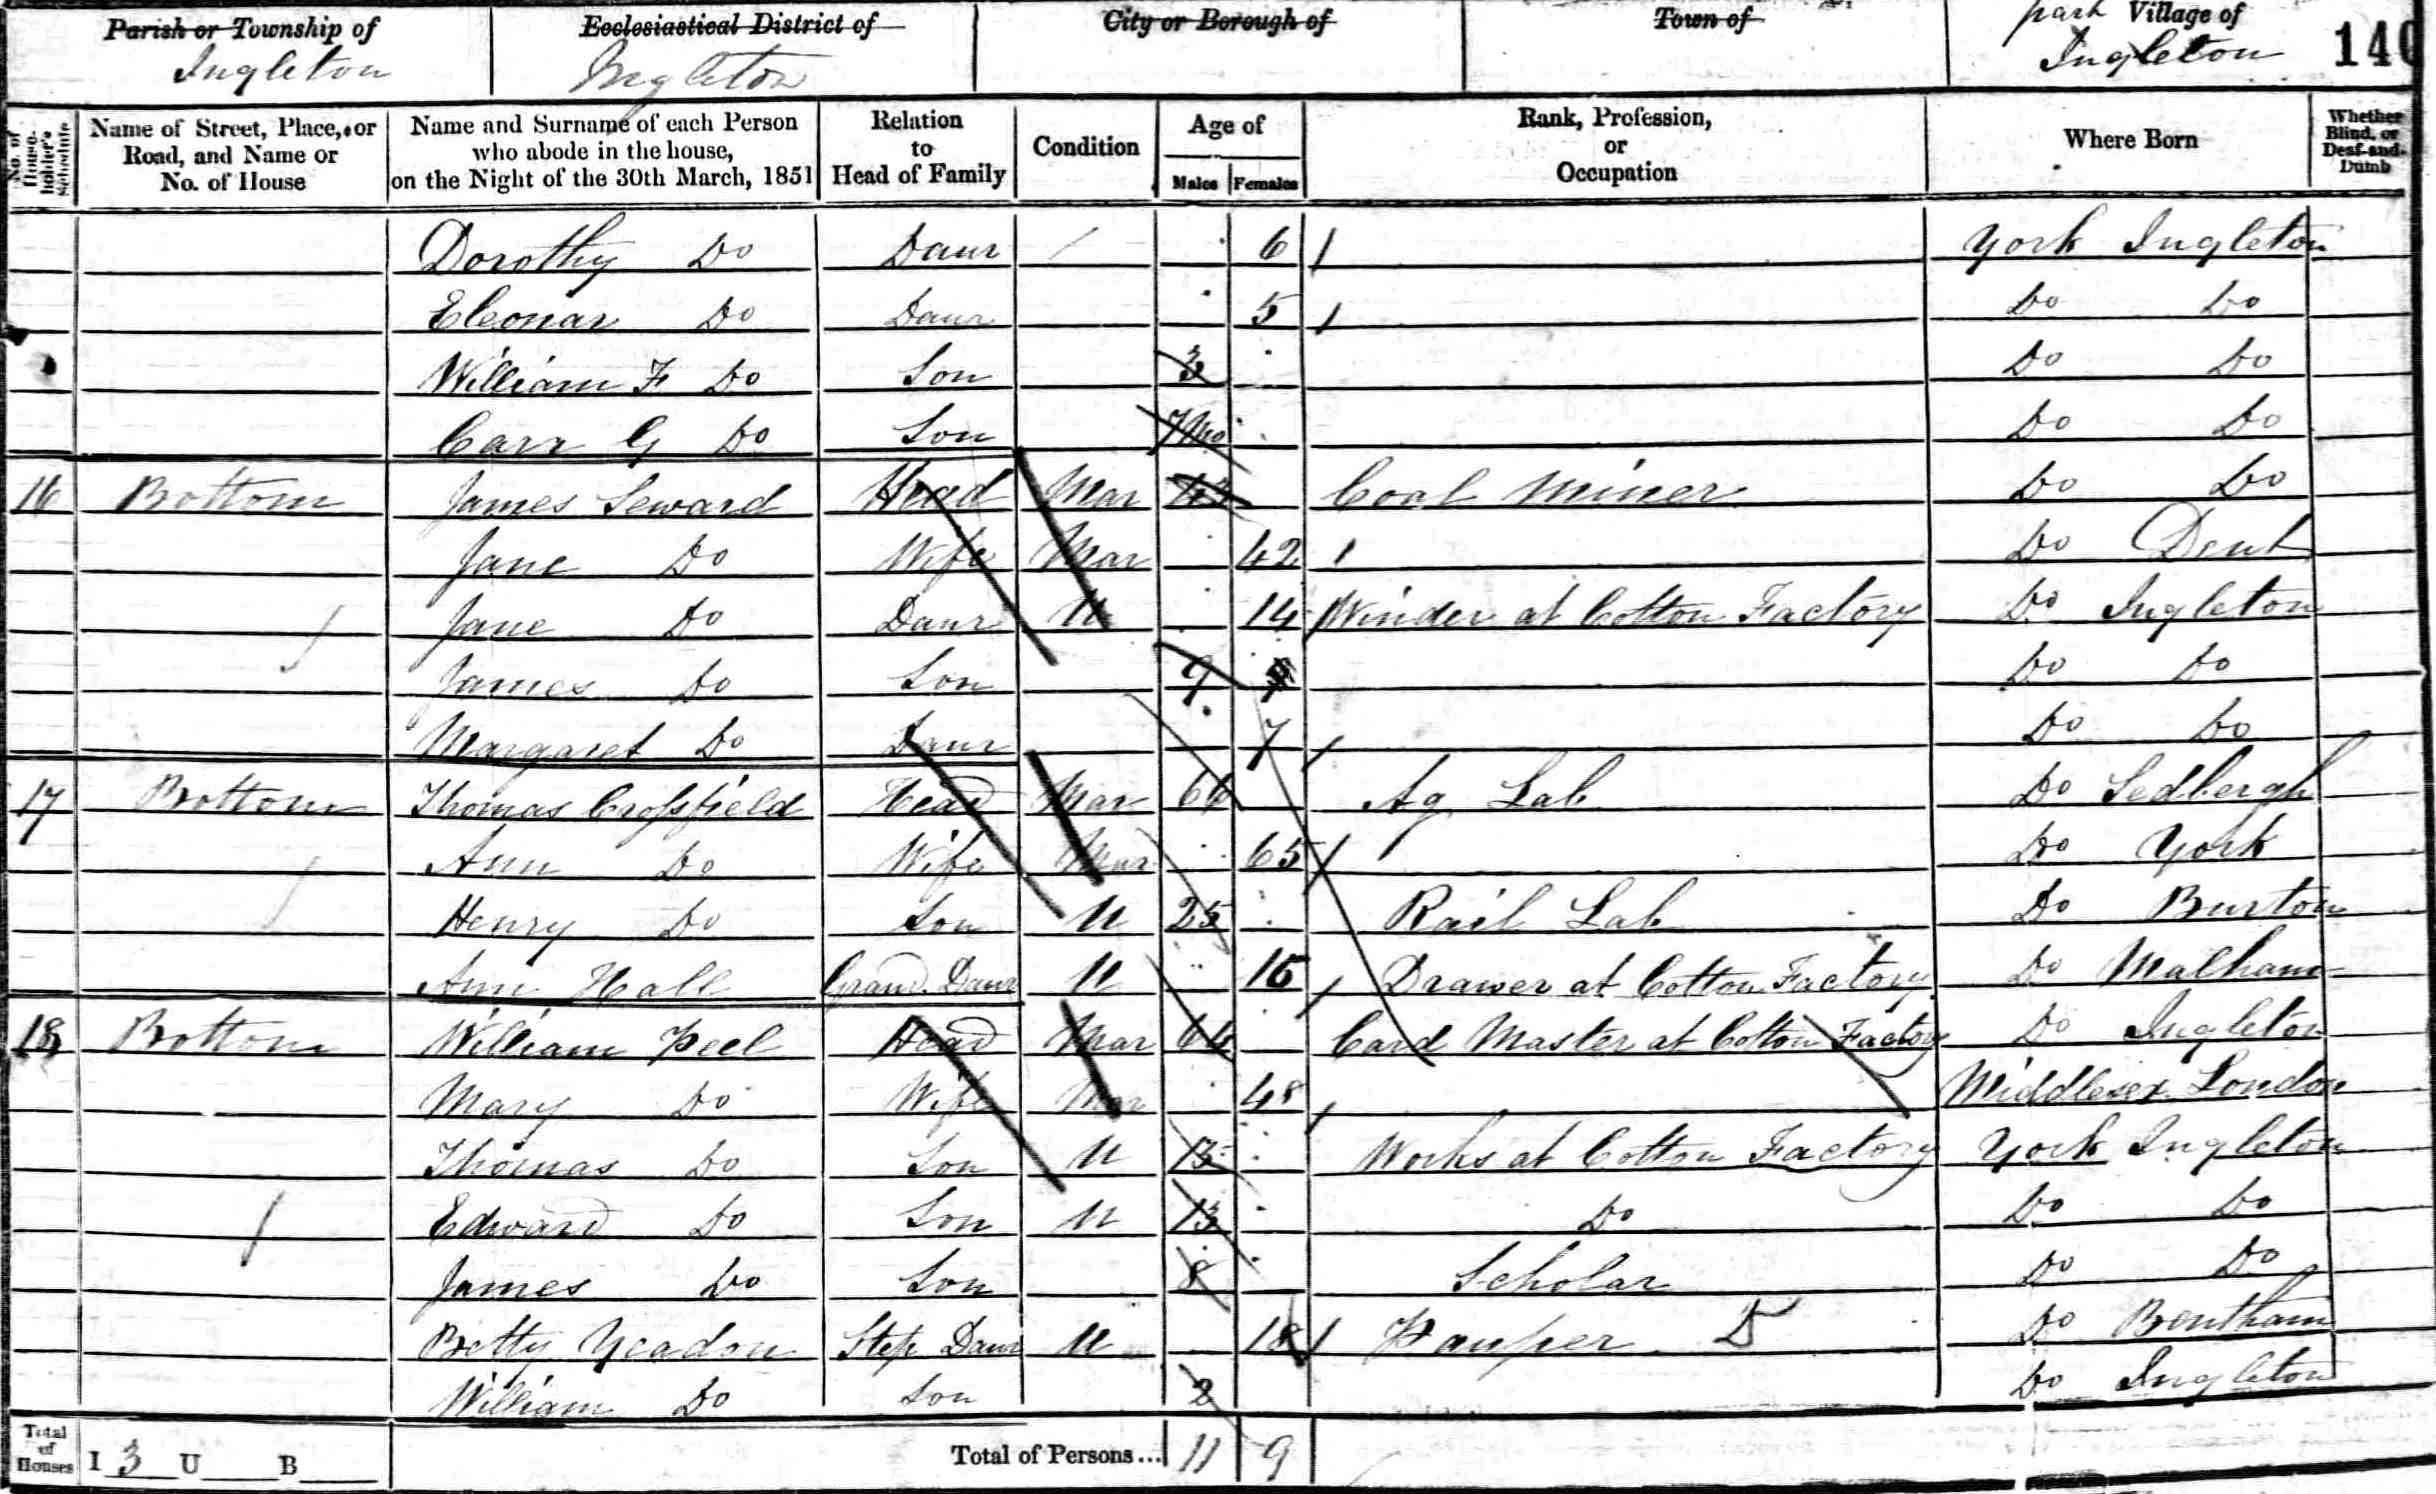 Parish or Township of Ecclesiastical District of City or Borough of Town of part Village of
Ingleton Ingleton Ingleton 140
No. of House-holder's Schedule Name of Street, Place, or Road, and Name or No. of House Name and Surname of each Person who abode in the house, on the Night of the 30th March, 1851 Relation to Head of Family Condition Age of Males Females Rank, Profession, or Occupation Where Born Whether Blind, or Deaf-and-Dumb
Dorothy Do Daur 6 York Ingleton
Eleonar Do Daur 5 Do Do
William F Do Son 3 Do Do
Carr G Do Son 7Mo Do Do
16 Bottom James Seward Head Mar 43 Coal Miner Do Do
Jane Do Wife Mar 42 Do Dent
Jane Do Daur U 14 Winder at Cotton Factory Do Ingleton
James Do Son 9 Do Do
Margaret Do Daur 7 Do Do
17 Bottom Thomas Crossfield Head Mar 66 Ag Lab Do Sedbergh
Ann Do Wife Mar 65 Do York
Henry Do Son U 25 Rail Lab Do Burton
Ann Hall Grand Daur U 15 Drawer at Cotton Factory Do Malham
18 Bottom William Peel Head Mar 64 Card Master at Cotton Factory Do Ingleton
Mary Do Wife Mar 48 Middlesex London
Thomas Do Son U 15 Works at Cotton Factory York Ingleton
Edward Do Son U 13 Do Do Do
James Do Son 8 Scholar Do Do
Betty Yeadon Step Daur U 18 Pauper Do Bentham
William Do Son 2 Do Ingleton
Total of Houses I 3 U B Total of Persons... 11 9